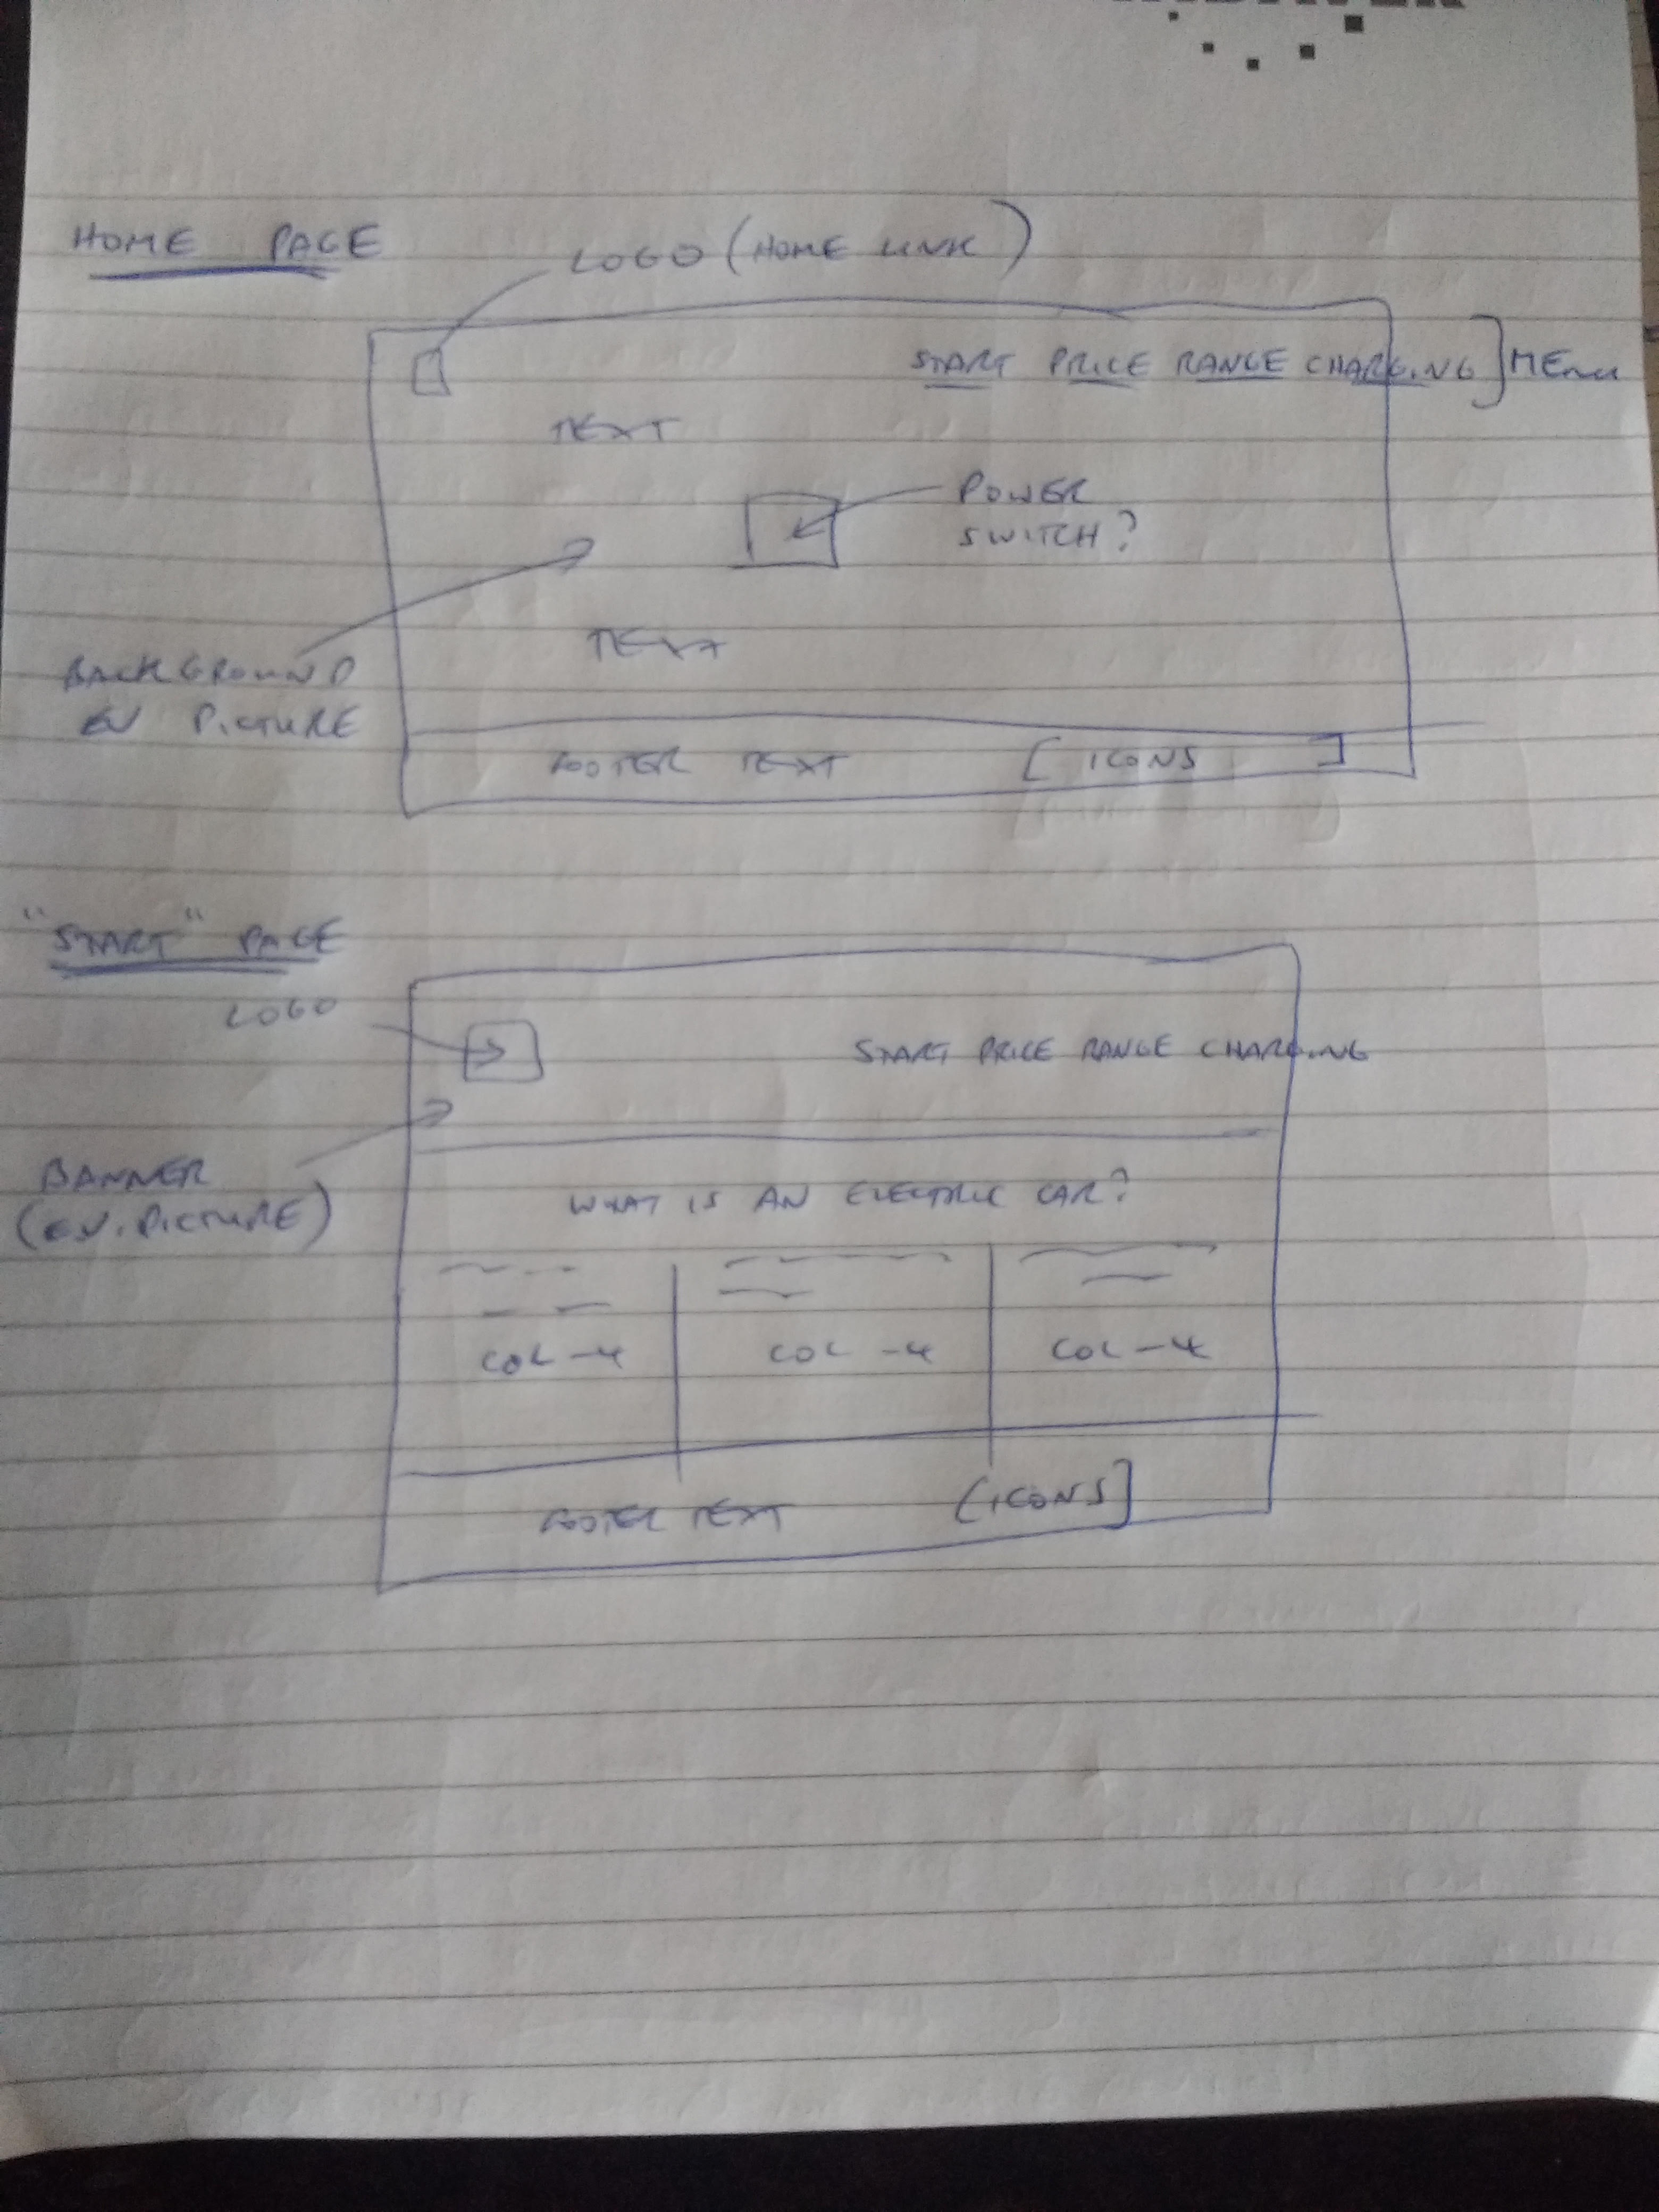 HOME PAGE
LOGO (HOME LINK)
START PRICE RANGE CHARGING ] MENU
TEXT
POWER
SWITCH?
TEXT
BACKGROUND
EV PICTURE
FOOTER TEXT [ ICONS ]
"START" PAGE
LOGO
START PRICE RANGE CHARGING
BANNER
(EV. PICTURE)
WHAT IS AN ELECTRIC CAR?
COL-4 COL-4 COL-4
FOOTER TEXT [ICONS]